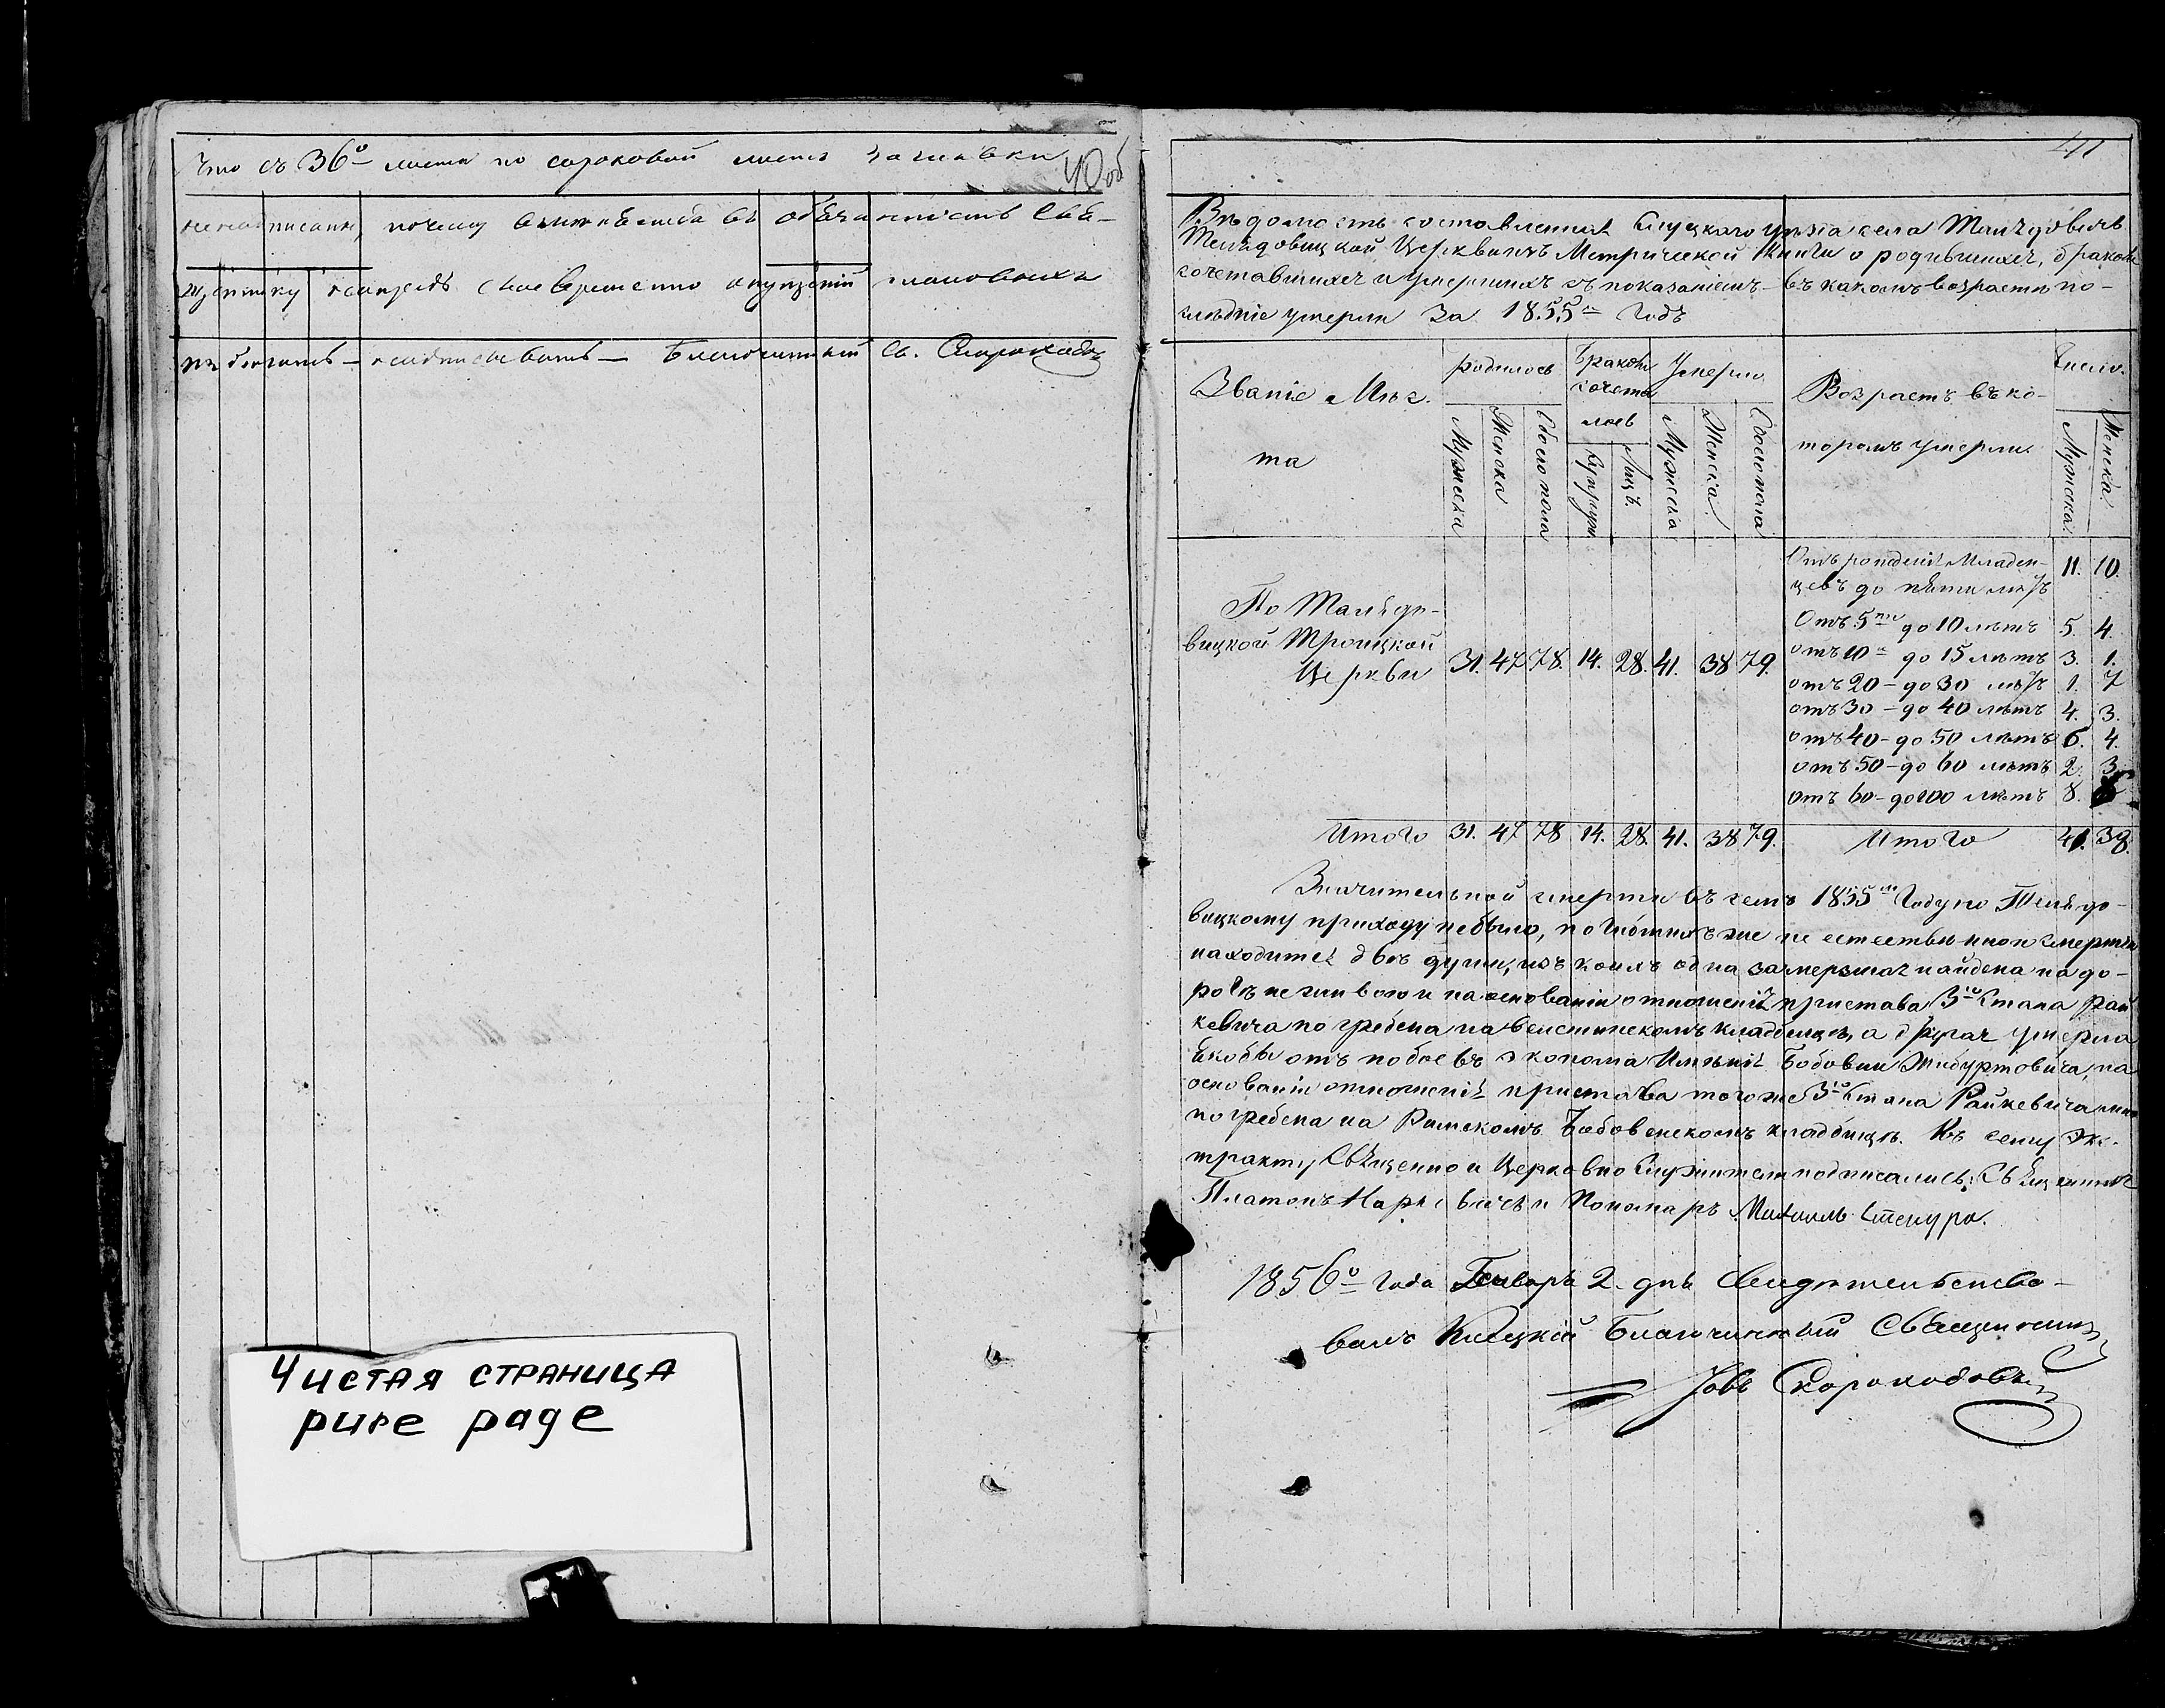 Что съ 36о листа по сороковой листъ зачиавки
40 об
ненаписаны, почему вмѣняется въ обязанность Свя-
щеннику напредь своевременно опущеній таковыхъ
недѣлать — Благочинный Св. Скороходов
Чистая страница
pure page
41
Вѣдомость составленная Слуцкаго уѣзда села Таляdовичъ
Телядовицкой Церкви изъ Метрической Книги о родившихся, бракомъ
сочетавшихся и умершихъ съ показаніемъ въ какомъ возрастѣ по-
слѣдніе умерли За 1855й Годъ
Званіе и Мѣс-
та
родилось
Мужеска
Женска
Обоего пола
Бракомъ
сочета
лось
Супруж
Лицъ.
Умерло
Мужеска
Женска
Обоего пола
Возрастъ въ ко-
торомъ умерли
Число.
Мужеска
Женска
По Таляdо-
вицкой Троицкой
Церкви 31. 47 78. 14. 28. 41. 38 79.
Отъ рожденія Младен-
цевъ до пяти лѣтъ 11. 10.
Отъ 5ти до 10 лѣтъ 5. 4.
отъ 10 до 15 лѣтъ 3. 1.
отъ 20 – до 30 лѣтъ 1. 7
отъ 30 – до 40 лѣтъ 4. 3.
отъ 40 – до 50 лѣтъ 6. 4.
отъ 50 – до 60 лѣтъ 2. 3.
отъ 60 – до 100 лѣтъ 8.
Итого 31. 47 78 14. 28. 41. 38 79. Итого 41. 38.
Значительной смерти въ семъ 1855м Году по Телядо-
вицкому приходу небыло, погибшихъ же не естественною смертію
находится двѣ души, изъ коихъ одна замерзшая найдена на до-
рогѣ неживою и на основаніи отношенія пристава 3го Стана Рай
кевича погребена на кладбищѣ, а другая умерла
якобы отъ побоевъ эконома Имѣнія Бобовни Жибуртовича, на
основаніи отношенія пристава тогоже 3го Стана Райкевича
погребена на Римскомъ Бобовенскомъ кладбищѣ. Къ сему Экс-
тракту Священно и Церковно Служители подписались: Священникъ
Платонъ и Пономаръ Михаилъ Стекура.
1856о года Генваря 2. дня Свидѣтельство-
валъ Благочинный Священникъ
Іовъ Скороходов